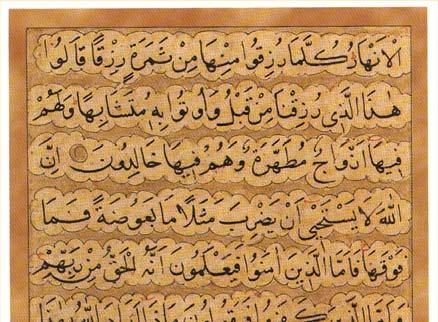 الْاَنْهَارُ كُلَّمَا رُزِقُوا مِنْهَا مِنْ ثَمَرَةٍ رِزْقًا قَالُوا
هٰذَا الَّذِي رُزِقْنَا مِنْ قَبْلُ وَاُوتُوا بِهِ مُتَشَابِهًا وَلَهُمْ
فِيهَا اَزْوَاجٌ مُطَهَّرَةٌ وَهُمْ فِيهَا خَالِدُونَ اِنَّ
اللّٰهَ لَا يَسْتَحْيِي اَنْ يَضْرِبَ مَثَلًا مَا بَعُوضَةً فَمَا
فَوْقَهَا فَاَمَّا الَّذِينَ اٰمَنُوا فَيَعْلَمُونَ اَنَّهُ الْحَقُّ مِنْ رَبِّهِمْ